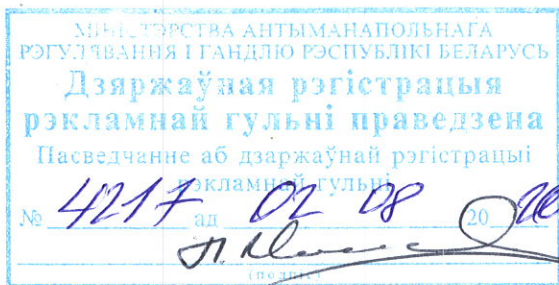 МІНІСТЭРСТВА АНТЫМАНАПОЛЬНАГА
РЭГУЛЯВАННЯ І ГАНДЛЮ РЭСПУБЛІКІ БЕЛАРУСЬ
Дзяржаўная рэгістрацыя
рэкламнай гульні праведзена
Пасведчанне аб дзяржаўнай рэгістрацыі
рэкламнай гульні
№ 4217 ад 02 08 20
(подпіс)